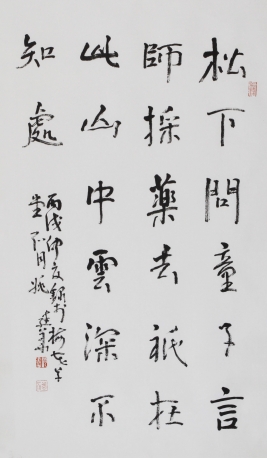 松下問童子言
師採藥去祇在
此山中雲深不
知處
丙戌仲夏錄於